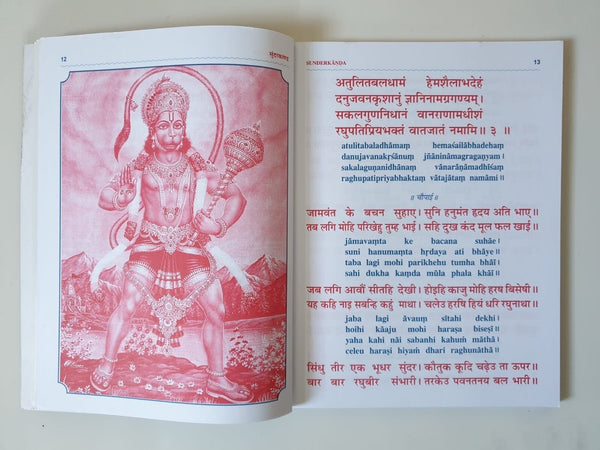 12
सुंदरकाण्ड
SUNDERKĀṆḌA
13
अतुलितबलधामं हेमशैलाभदेहं
दनुजवनकृशानुं ज्ञानिनामग्रगण्यम्।
सकलगुणनिधानं वानराणामधीशं
रघुपतिप्रियभक्तं वातजातं नमामि॥ ३ ॥
atulitabaladhāmaṃ hemaśailābhadehaṃ
danujavanakṛśānuṃ jñānināmagragaṇyam।
sakalaguṇanidhānaṃ vānarāṇāmadhīśaṃ
raghupatipriyabhaktaṃ vātajātaṃ namāmi।
॥ चौपाई ॥
जामवंत के बचन सुहाए। सुनि हनुमंत हृदय अति भाए॥
तब लगि मोहि परिखेहु तुम्ह भाई। सहि दुख कंद मूल फल खाई॥
jāmavaṃta ke bacana suhāe।
suni hanumaṃta hṛdaya ati bhāye॥
taba lagi mohi parikhehu tumha bhāī।
sahi dukha kaṃda mūla phala khāī॥
जब लगि आवौं सीतहि देखी। होइहि काजु मोहि हरष बिसेषी॥
यह कहि नाइ सबन्हि कहुं माथा। चलेउ हरषि हियं धरि रघुनाथा॥
jaba lagi āvauṃ sītahi dekhi।
hoihi kāaju mohi haraṣa biseṣī॥
yaha kahi nāi sabanhi kahuṃ māthā।
celeu haraṣi hiyaṃ dhari raghunāthā॥
सिंधु तीर एक भूधर सुंदर। कौतुक कूदि चढ़ेउ ता ऊपर॥
बार बार रघुबीर संभारी। तरकेउ पवनतनय बल भारी॥